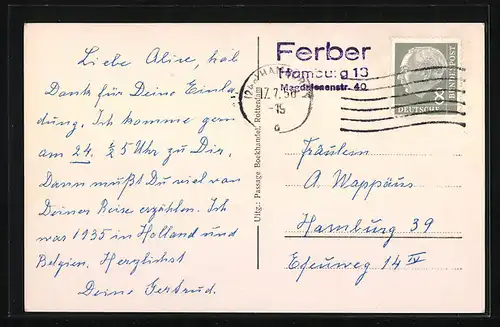 Liebe Alice, hab
Dank für Deine Einla-
dung. Ich komme gern
am 24. 1/2 5 Uhr zu Dir,
Dann mußt Du viel von
Deiner Reise erzählen. Ich
war 1935 in Holland und
Belgien. Herzlichst
Deine Gertrud.
Uitg.: Passage Boekhandel,
Ferber
Hamburg 13
Magdalenenstr. 40
-15
DEUTSCHE
BUNDESPOST
8
Fräulein
A. Wappäus
Hamburg 39
Efeuweg 14 IV